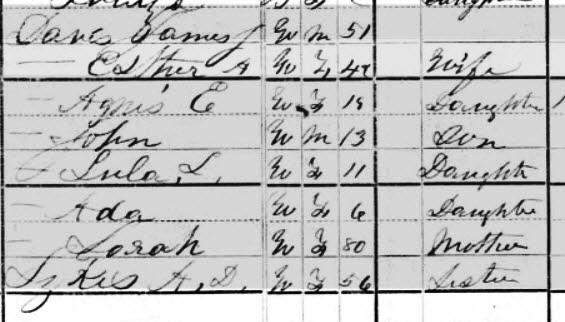 Davis James J W M 51
— Esther A W F 49 Wife
— Agnis E W F 19 Daughter 1
— John W M 13 Son
— Lula L. W F 11 Daught
— Ada W F 6 Daughter
— Sarah W F 80 Mother
Sykes A. D. W F 56 Sister